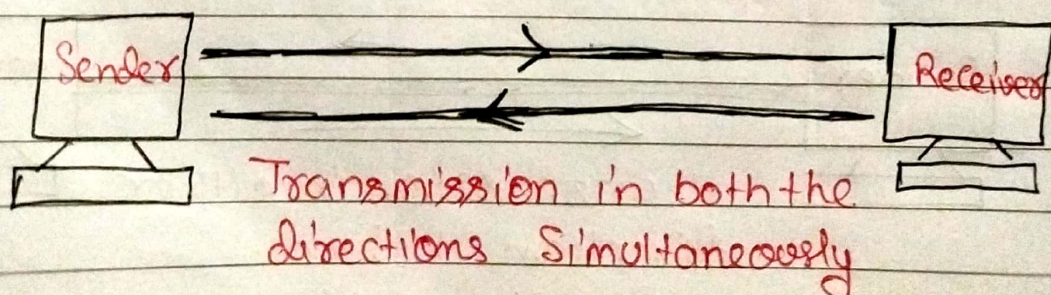 Sender
Receiver
Transmission in both the
directions Simultaneously